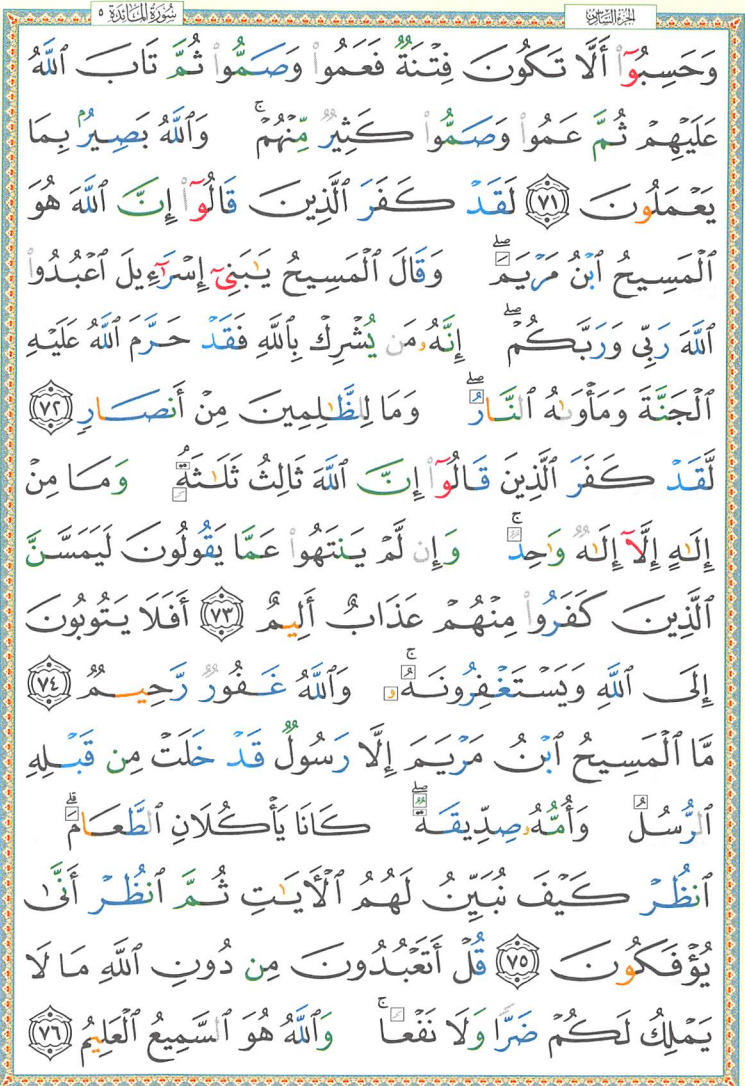 الجزء السادس
سُورَةُ المَائدة ٥
وَحَسِبُوٓا۟ أَلَّا تَكُونَ فِتْنَةٌ فَعَمُوا۟ وَصَمُّوا۟ ثُمَّ تَابَ ٱللَّهُ
عَلَيْهِمْ ثُمَّ عَمُوا۟ وَصَمُّوا۟ كَثِيرٌ مِّنْهُمْ ۚ وَٱللَّهُ بَصِيرٌۢ بِمَا
يَعْمَلُونَ ٧١ لَقَدْ كَفَرَ ٱلَّذِينَ قَالُوٓا۟ إِنَّ ٱللَّهَ هُوَ
ٱلْمَسِيحُ ٱبْنُ مَرْيَمَ ۖ وَقَالَ ٱلْمَسِيحُ يَـٰبَنِىٓ إِسْرَٰٓءِيلَ ٱعْبُدُوا۟
ٱللَّهَ رَبِّى وَرَبَّكُمْ ۖ إِنَّهُۥ مَن يُشْرِكْ بِٱللَّهِ فَقَدْ حَرَّمَ ٱللَّهُ عَلَيْهِ
ٱلْجَنَّةَ وَمَأْوَىٰهُ ٱلنَّارُ ۖ وَمَا لِلظَّـٰلِمِينَ مِنْ أَنصَارٍ ٧٢
لَّقَدْ كَفَرَ ٱلَّذِينَ قَالُوٓا۟ إِنَّ ٱللَّهَ ثَالِثُ ثَلَـٰثَةٍ ۘ وَمَا مِنْ
إِلَـٰهٍ إِلَّآ إِلَـٰهٌ وَٰحِدٌ ۚ وَإِن لَّمْ يَنتَهُوا۟ عَمَّا يَقُولُونَ لَيَمَسَّنَّ
ٱلَّذِينَ كَفَرُوا۟ مِنْهُمْ عَذَابٌ أَلِيمٌ ٧٣ أَفَلَا يَتُوبُونَ
إِلَى ٱللَّهِ وَيَسْتَغْفِرُونَهُۥ ۚ وَٱللَّهُ غَفُورٌ رَّحِيمٌ ٧٤
مَّا ٱلْمَسِيحُ ٱبْنُ مَرْيَمَ إِلَّا رَسُولٌ قَدْ خَلَتْ مِن قَبْلِهِ
ٱلرُّسُلُ وَأُمُّهُۥ صِدِّيقَةٌ ۖ كَانَا يَأْكُلَانِ ٱلطَّعَامَ ۗ
ٱنظُرْ كَيْفَ نُبَيِّنُ لَهُمُ ٱلْـَٔايَـٰتِ ثُمَّ ٱنظُرْ أَنَّىٰ
يُؤْفَكُونَ ٧٥ قُلْ أَتَعْبُدُونَ مِن دُونِ ٱللَّهِ مَا لَا
يَمْلِكُ لَكُمْ ضَرًّا وَلَا نَفْعًا ۚ وَٱللَّهُ هُوَ ٱلسَّمِيعُ ٱلْعَلِيمُ ٧٦